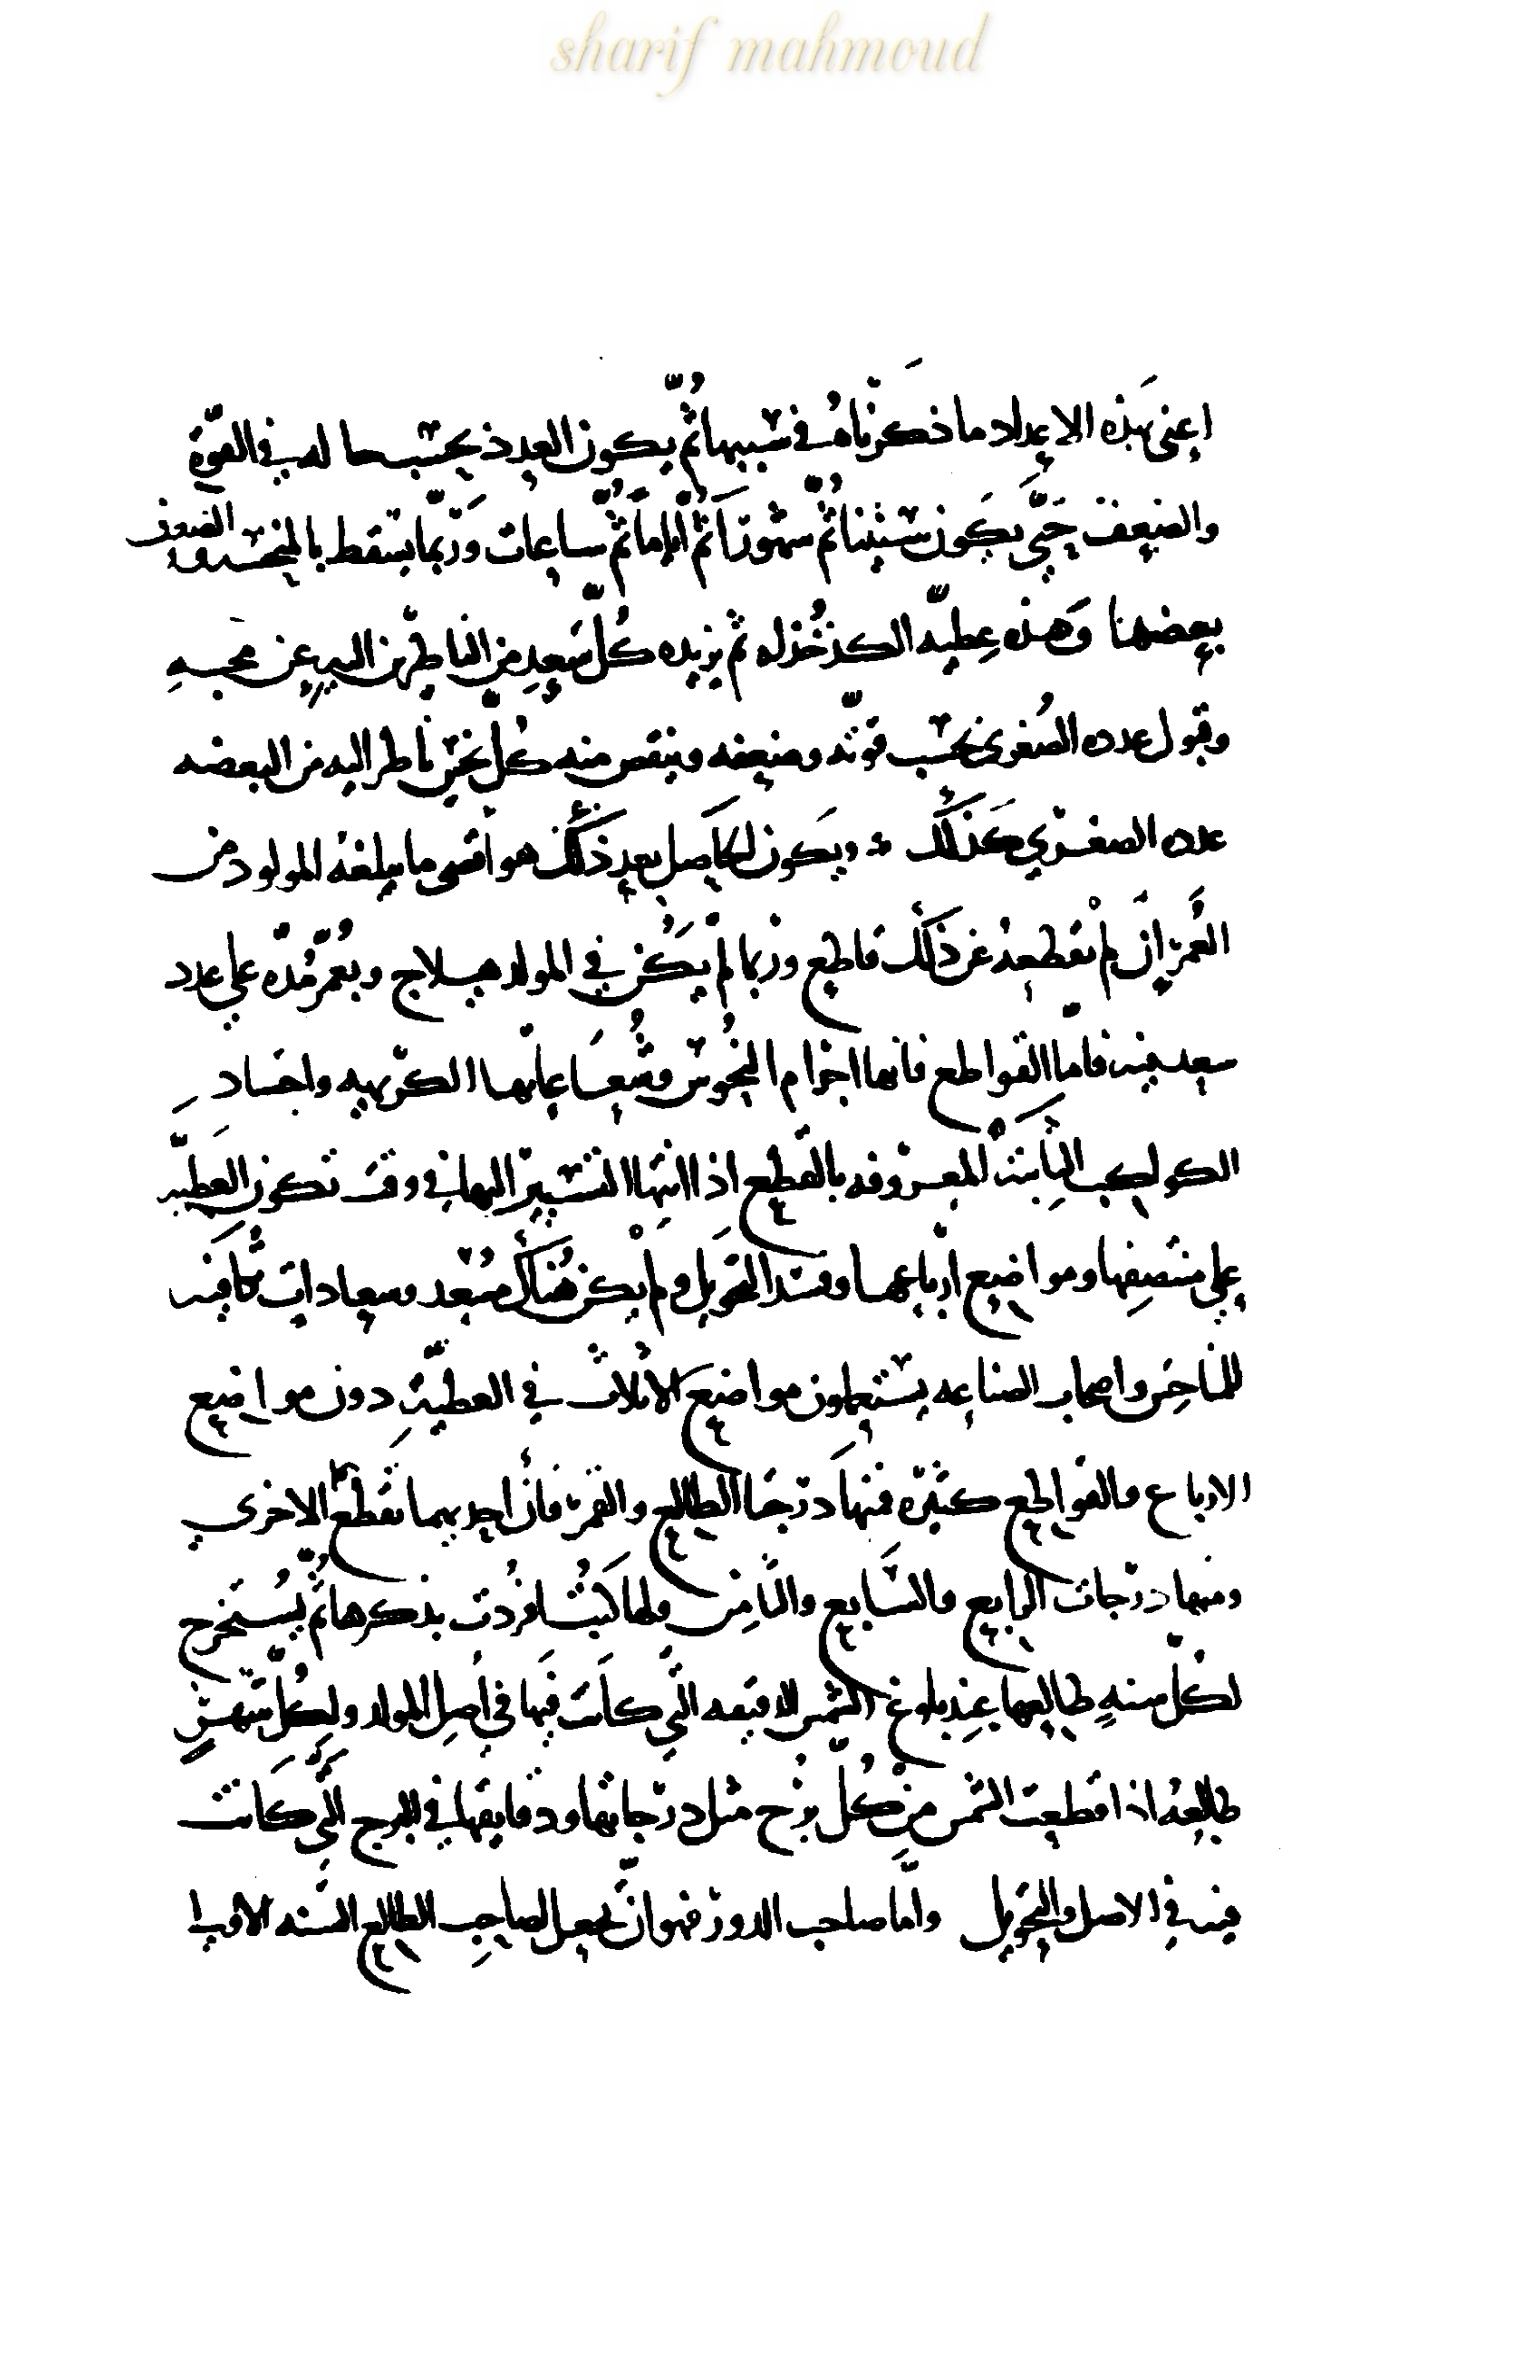 sharif mahmoud
اعنى بهذه الاعداد ما ذكرناه في سببها ثم يكون العدد بحسب حاله في القوة
والضعف حتى يكون سنينا ثم شهورا ثم اياما ثم ساعات وربما يسقط
بعضها وهذه عطيه الكذخذاه ثم يزيده كل سعد من الناظرين اليه عن محبه
وقبول عدده الصغرى بحسب قوته وضعفه وينقص منه كل نحس ناظر اليه من البعضه
عدده الصغرى كذلك ؞ ويكون الحاصل بعد ذلك هو اقصى ما يبلغه المولود من
العمر ان لم يقطعه عن ذلك قاطع وربما لم يكن في المولد هيلاج ويعمر مده على عدد
سعد فيه فاما القواطع فانها اجرام النحوس وشعاعاتها الكريهه واجساد
الكواكب الثابته المعروفه بالقطع اذا انتها التسيير اليها في وقت تكون العطيه
على منتصفها ومواضع ارباعها وفسد التحويل ولم يكن هناك سعد وسعادات كافيه
للمناحس واصحاب الصناعه يستعملون مواضع الاثلاث في العطية دون مواضع
الارباع والقواطع كثيره فمنها درجتا الطالع والقمر فان احديهما تقطع الاخرى
ومنها درجات الرابع والسابع والثامن ولها كتب افردت بذكرها ثم يستخرج
لكل سنه طالعها عند بلوغ الشمس الدقيقه التي كانت فيها في اصل المولد ولكل شهر
طالعه اذا قطعت الشمس من كل برج مثل درجاتها ودقايقها في البرج التي كانت
فيه في الاصل والتحويل واما صاحب الدور فهو ان يجعل لصاحب الطالع السنه الاولى